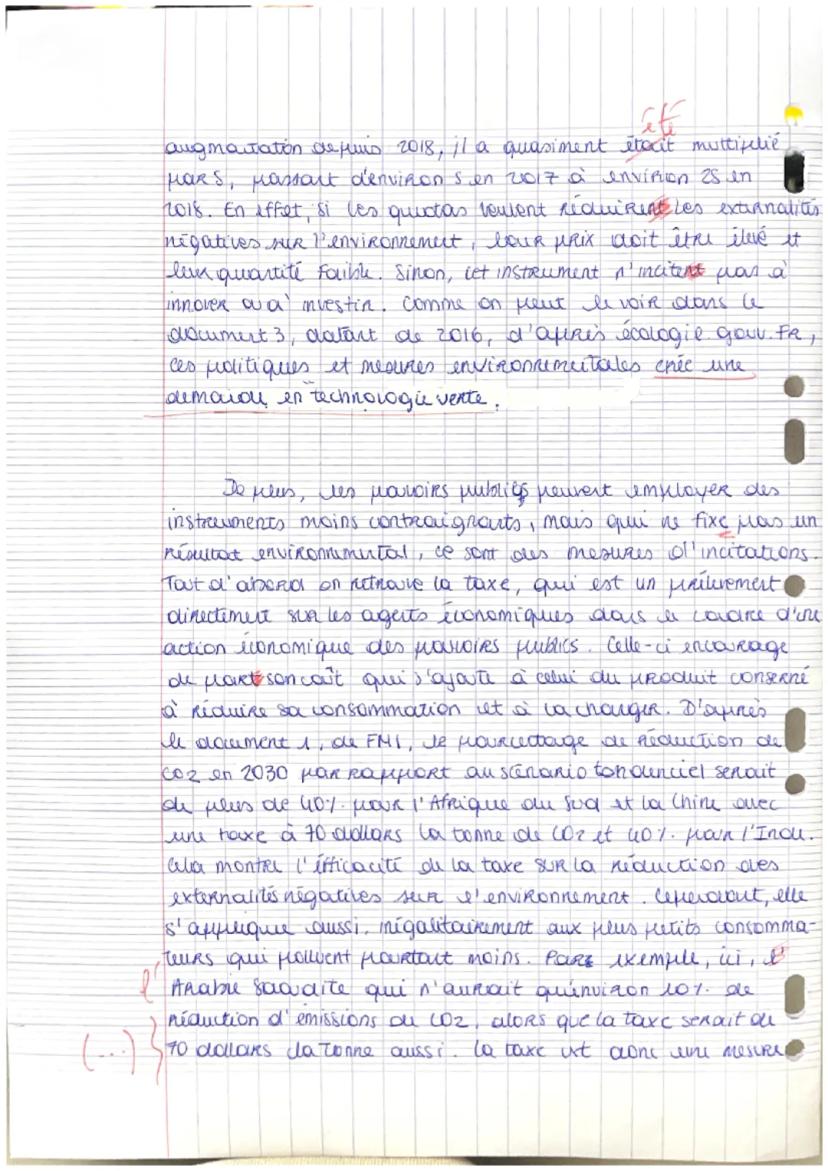 été
augmentation depuis 2018, il a quasiment était multiplié
par 5, passant d'environ 5 en 2017 à environ 25 en
2018. En effet, si les quotas veulent réduirent les externalités
négatives sur l'environnement, leur prix doit être élevé et
leur quantité faible. Sinon, cet instrument n'incitent pas à
innover ou à investir. Comme on peut le voir dans le
document 3, datant de 2016, d'après écologie.gouv.fr,
ces politiques et mesures environnementales crée une
demande en technologie verte.
De plus, les pouvoirs publics peuvent employer des
instruments moins contraignants, mais qui ne fixe pas un
résultat environnemental, ce sont des mesures d'incitations.
Tout d'abord on retrouve la taxe, qui est un prélèvement
directement sur les agents économiques dans le cadre d'une
action économique des pouvoirs publics. Celle-ci encourage
de part son coût qui s'ajoute à celui du produit conserné
à réduire sa consommation et à la changer. D'après
le document 1, de FMI, le pourcentage de réduction de
CO2 en 2030 par rapport au scénario tendanciel serait
de plus de 40% pour l'Afrique du Sud et la Chine avec
une taxe à 70 dollars la tonne de CO2 et 40% pour l'Inde.
Cela montre l'éfficacité de la taxe sur la réduction des
externalités négatives sur l'environnement. Cependant, elle
s'applique aussi inégalitairement aux plus petits consomma-
teurs qui polluent pourtant moins. Par exemple, ici, l'
l' Arabie Saoudite qui n'aurait qu'environ 10% de
réduction d'émissions de CO2, alors que la taxe serait de
(...) 70 dollars la tonne aussi. La taxe est donc une mesure